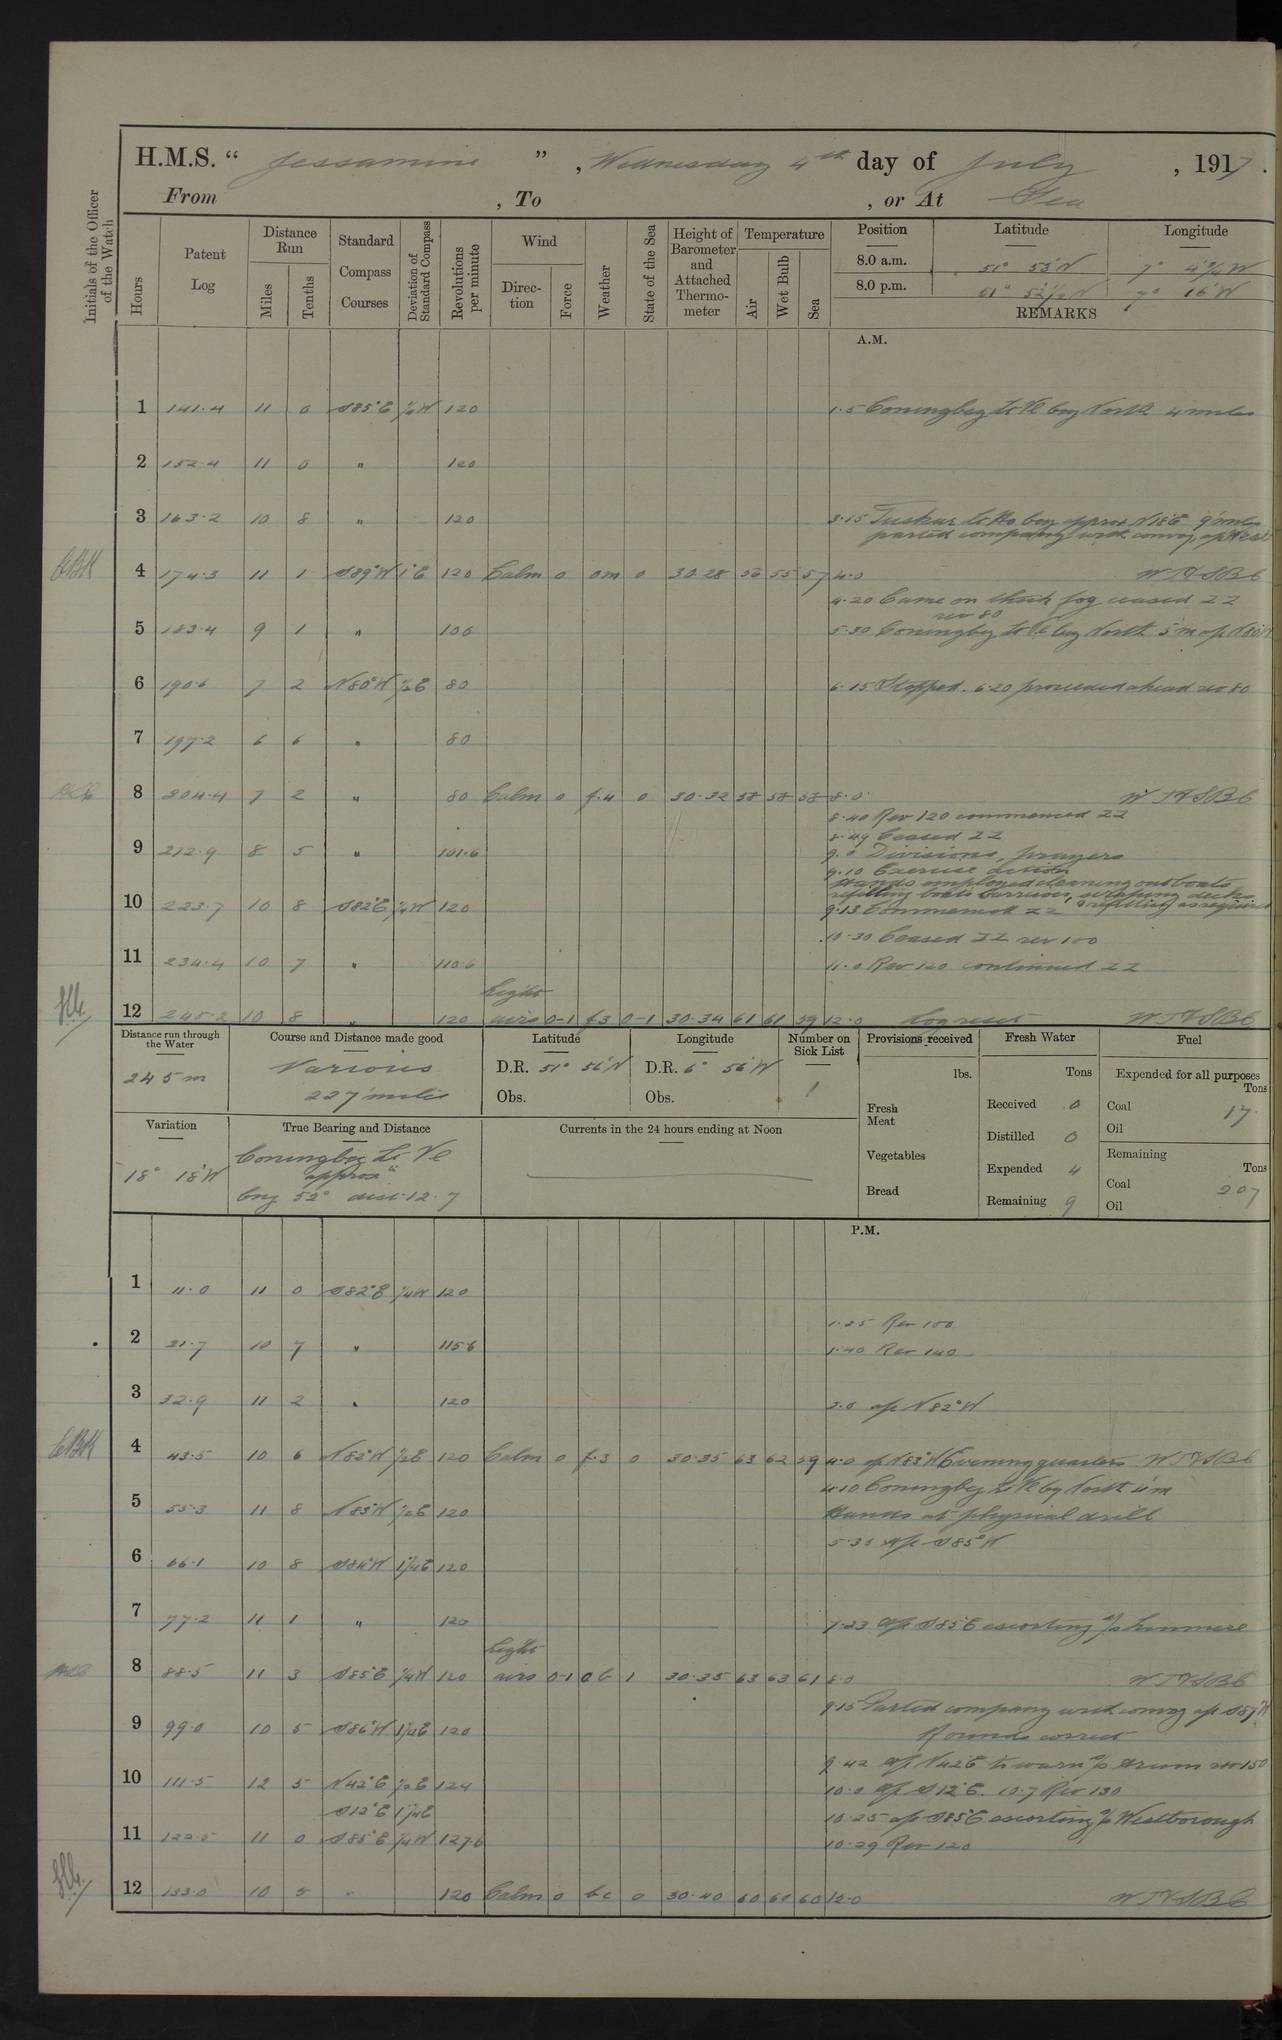 H.M.S. “ Jessamine ” , Wednesday 4th day of July , 1917 .
From , To , or At Sea
Initials of the Officer of the Watch
Hours
Patent Log
Distance Run
Miles
Tenths
Standard Compass Courses
Deviation of Standard Compass
Revolutions per minute
Wind
Direction
Force
Weather
State of the Sea
Height of Barometer and Attached Thermometer
Temperature
Air
Wet Bulb
Sea
Position Latitude Longitude
8.0 a.m. 51° 55' N 7° 4½' W
8.0 p.m. 51° 52½ N 7° 16' W
REMARKS
A.M.
1 141.4 11 0 S85°E ¼W 120 1.5 Coningbeg Lt Vl brg North 4 miles
2 152.4 11 0 " 120
3 163.2 10 8 " 120 3.15 Tuskar Lt Ho brg approx N18°E 9 miles
parted company with convoy
4 174.3 11 1 S89°W 1°E 120 Calm 0 om 0 30.28 56 55 57 4.0
4.20 Came on thick fog ceased ZZ
rev 80
5 183.4 9 1 " 100 5.30 Coningbeg Lt Vl brg North 5 m a/c N80W
6 190.6 7 2 N80°W ½E 80 6.15 Stopped. 6.20 proceeded ahead rev 80
7 197.2 6 6 " 80
8 204.4 7 2 " 80 Calm 0 f.4 0 30.32 58 58 58 8.0
8.40 Rev 120 commenced ZZ
8.49 Ceased ZZ
9 212.9 8 5 " 101.6 9.0 Divisions, prayers
9.10 Exercise action
Hands employed cleaning out boats
refilling boats barricoes, scraping decks
& refitting as requisite
10 223.7 10 8 S82°E ¼W 120 9.13 Commenced ZZ
10.30 Ceased ZZ rev 100
11 234.4 10 7 " 110.6 11.0 Rev 120 continued ZZ
12 245.2 10 8 " 120 Light airs 0-1 f.3 0-1 30.34 61 61 59 12.0 Log reset
Distance run through the Water
245 m
Course and Distance made good
Various
227 miles
Latitude
D.R. 51° 56' N
Obs.
Longitude
D.R. 6° 56' W
Obs.
Number on Sick List
1
Provisions received
lbs.
Fresh Meat
Vegetables
Bread
Fresh Water
Tons
Received 0
Distilled 0
Expended 4
Remaining 9
Fuel
Expended for all purposes
Tons
Coal 17
Oil
Remaining
Tons
Coal 207
Oil
Variation
18° 18' W
True Bearing and Distance
Coningbeg Lt Vl
approx
brg 52° dist. 12.7
Currents in the 24 hours ending at Noon
P.M.
1 11.0 11 0 S82°E ¼W 120
1.25 Rev 100
2 21.7 10 7 " 115.6 1.40 Rev 140
3 32.9 11 2 " 120 3.0 a/c N82°W
4 43.5 10 6 N82°W ½E 120 Calm 0 f.3 0 30.35 63 62 59 4.0 a/c N83°W Evening quarters
4.10 Coningbeg Lt Vl brg North 4 m
5 55.3 11 8 N83°W ½E 120 Hands at physical drill
5.30 a/c S85°W
6 66.1 10 8 1¼E 120
7 77.2 11 1 " 120 7.23 a/c S85°E escorting s/s Kenmare
8 88.5 11 3 S85°E ¼W 120 Light airs 0-1 1 30.35 63 63 61 8.0
9.15 Parted company with convoy a/c
9 99.0 10 5 S86°W 1¼E 120 Rounds correct
9.42 a/c N42E to warn s/s
10 111.5 12 5 N42°E ½E 124 10.0 a/c S12°E. 10.7 Rev 130
S12°E 1¼E 10.25 a/c S85°E escorting s/s Westborough
11 122.5 11 0 S85°E ¼W 127.6 10.29 Rev 120
12 133.0 10 5 " 120 Calm 0 bc 0 30.40 60 60 60 12.0